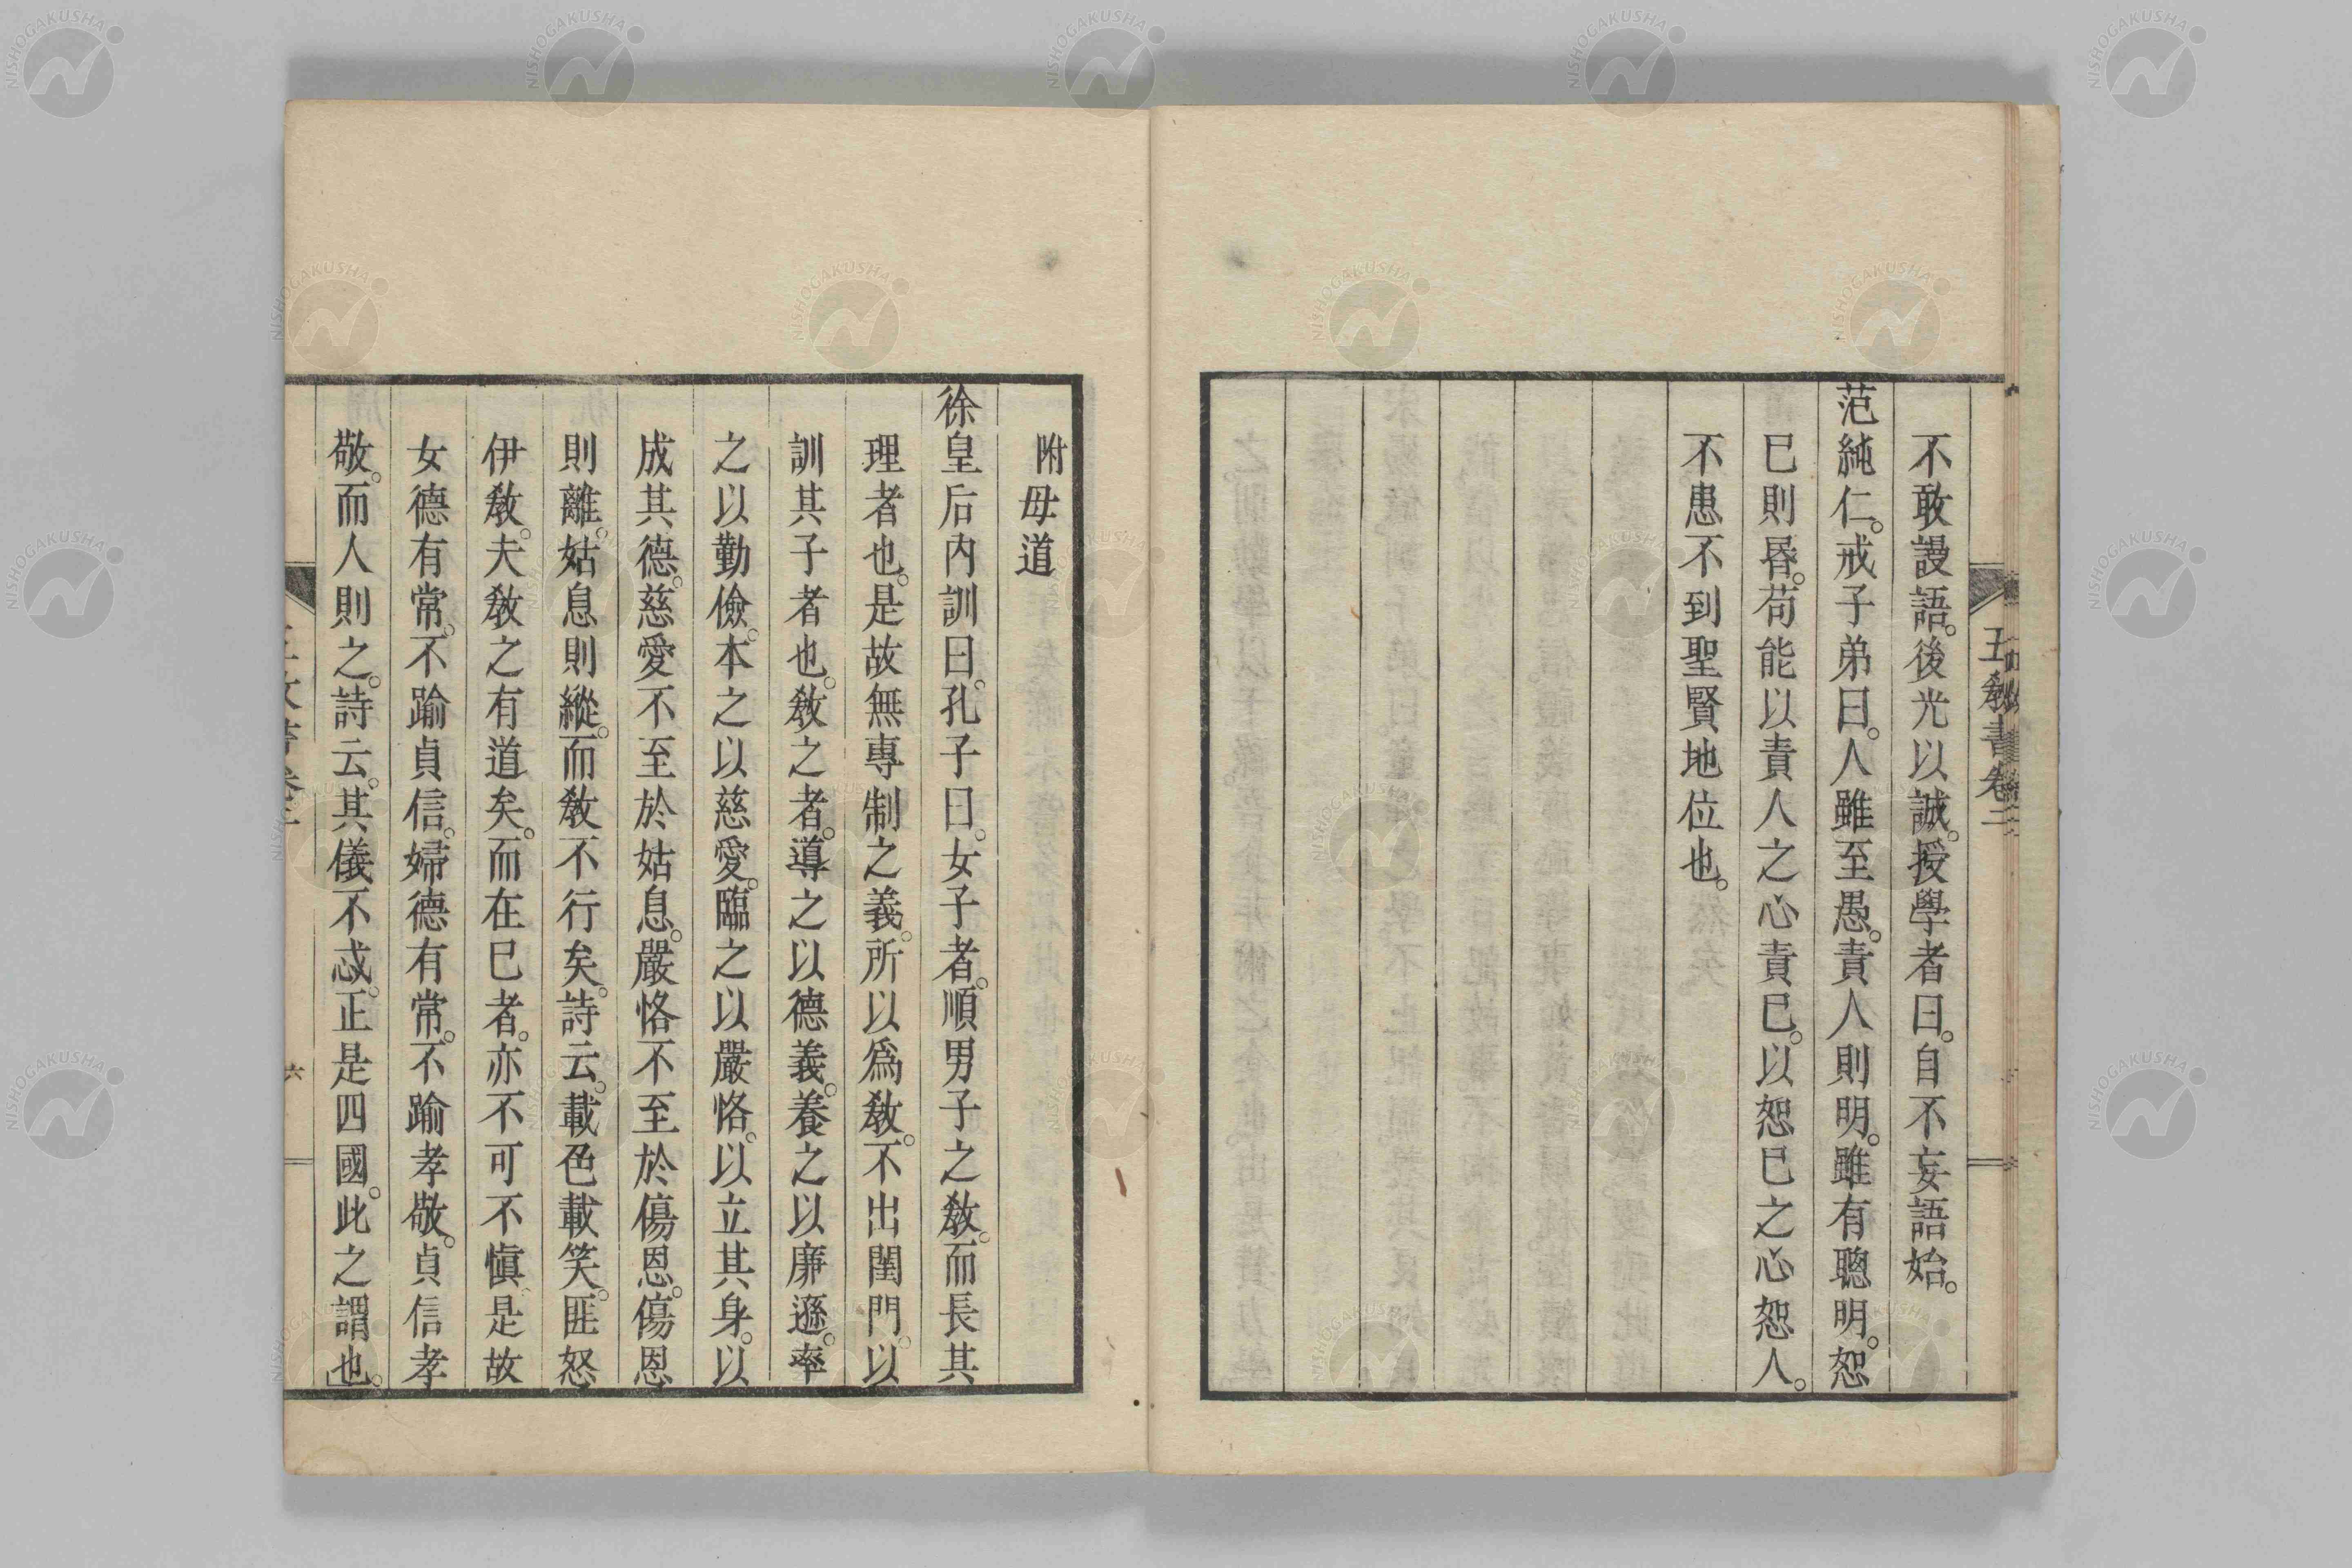 五教書卷二
不敢謾語。後光以誠。授學者曰。自不妄語始。
范純仁。戒子弟曰。人雖至愚。責人則明。雖有聰明。恕
巳則昬。苟能以責人之心責巳。以恕巳之心恕人。
不患不到聖賢地位也。
附母道
徐皇后內訓曰。孔子曰。女子者。順男子之敎。而長其
理者也。是故無專制之義。所以爲敎。不出閨門。以
訓其子者也。敎之者。導之以德義。養之以廉遜。率
之以勤儉。本之以慈愛。臨之以嚴恪。以立其身。以
成其德。慈愛不至於姑息。嚴恪不至於傷恩。傷恩
則離。姑息則縱。而敎不行矣。詩云。載色載笑。匪怒
伊敎。夫敎之有道矣。而在巳者。亦不可不愼。是故
女德有常。不踰貞信。婦德有常。不踰孝敬。貞信孝
敬。而人則之。詩云。其儀不忒。正是四國。此之謂也。
六
NISHOGAKUSHA